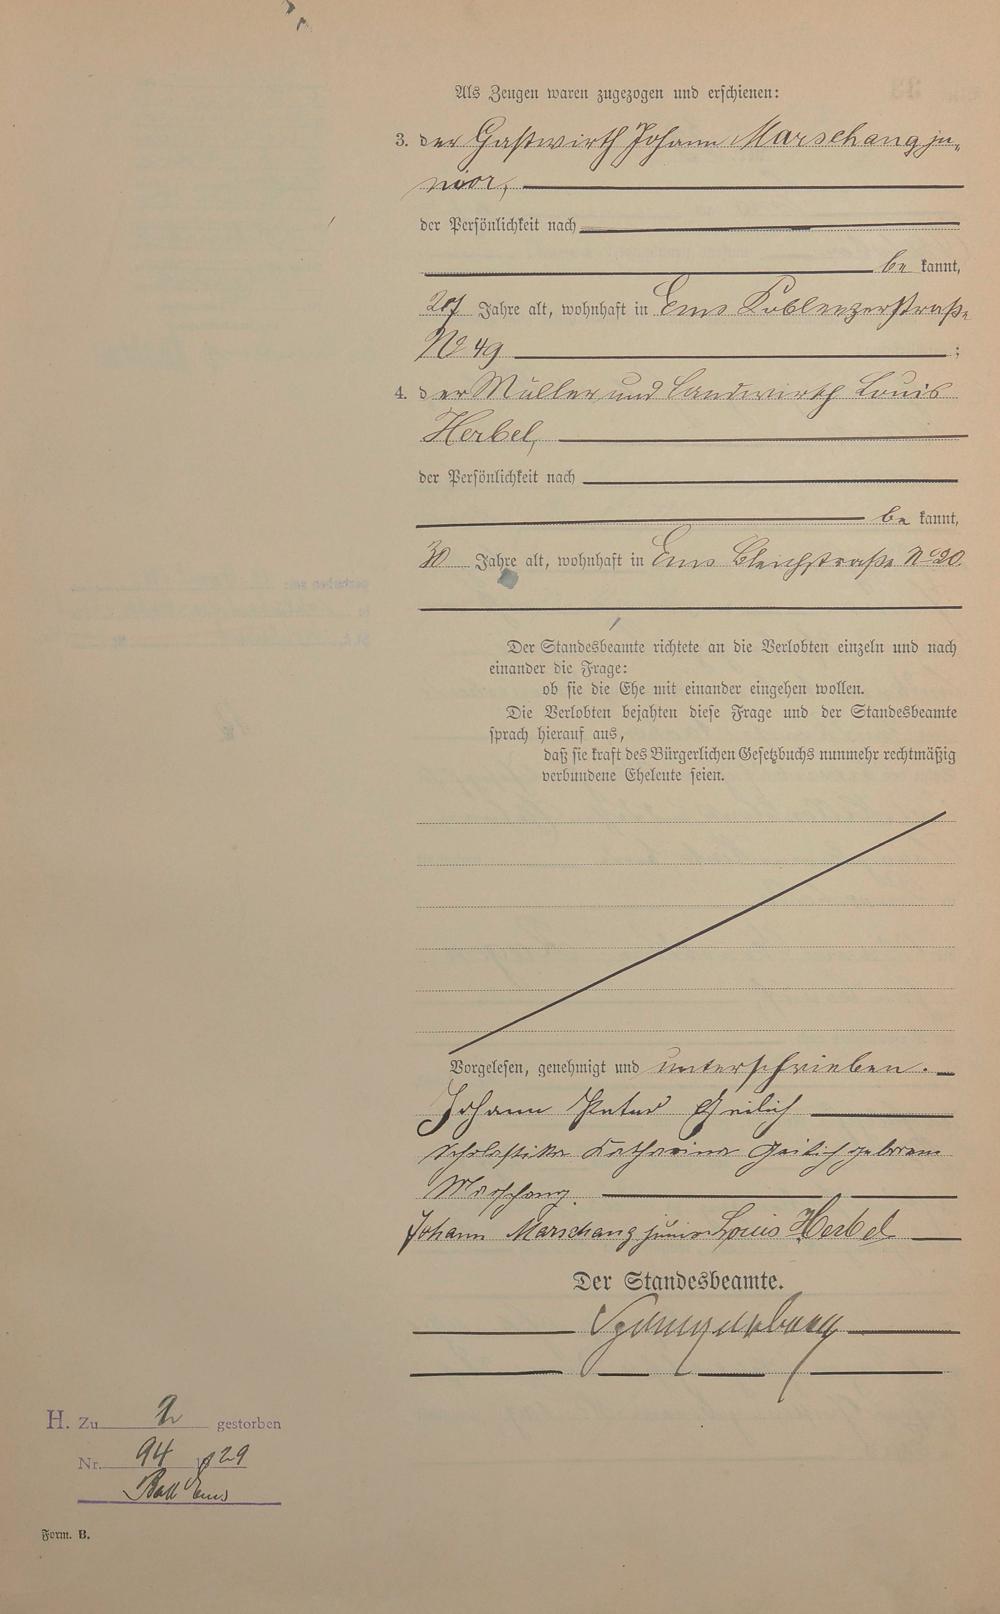 Als Zeugen waren zugezogen und erschienen:
3. der Gastwirth Johann Marschang ju-
nior,
der Persönlichkeit nach
be kannt,
Jahre alt, wohnhaft in Ems Koblenzerstraße
No 49 ;
4. der Müller und Landwirth Louis
Herbel,
der Persönlichkeit nach
be kannt,
30 Jahre alt, wohnhaft in Ems Bleichstraße No 20.
Der Standesbeamte richtete an die Verlobten einzeln und nach
einander die Frage:
ob sie die Ehe mit einander eingehen wollen.
Die Verlobten bejahten diese Frage und der Standesbeamte
sprach hierauf aus,
daß sie kraft des Bürgerlichen Gesetzbuchs nunmehr rechtmäßig
verbundene Eheleute seien.
Vorgelesen, genehmigt und unterschrieben.
Johann Peter Geilich
Scholastika Katharina Geilich geborene
Marschang.
Johann Marschang junior Louis Herbel
Der Standesbeamte.
H. Zu 2 gestorben
Nr. 94 1929
Bad Ems
Form. B.